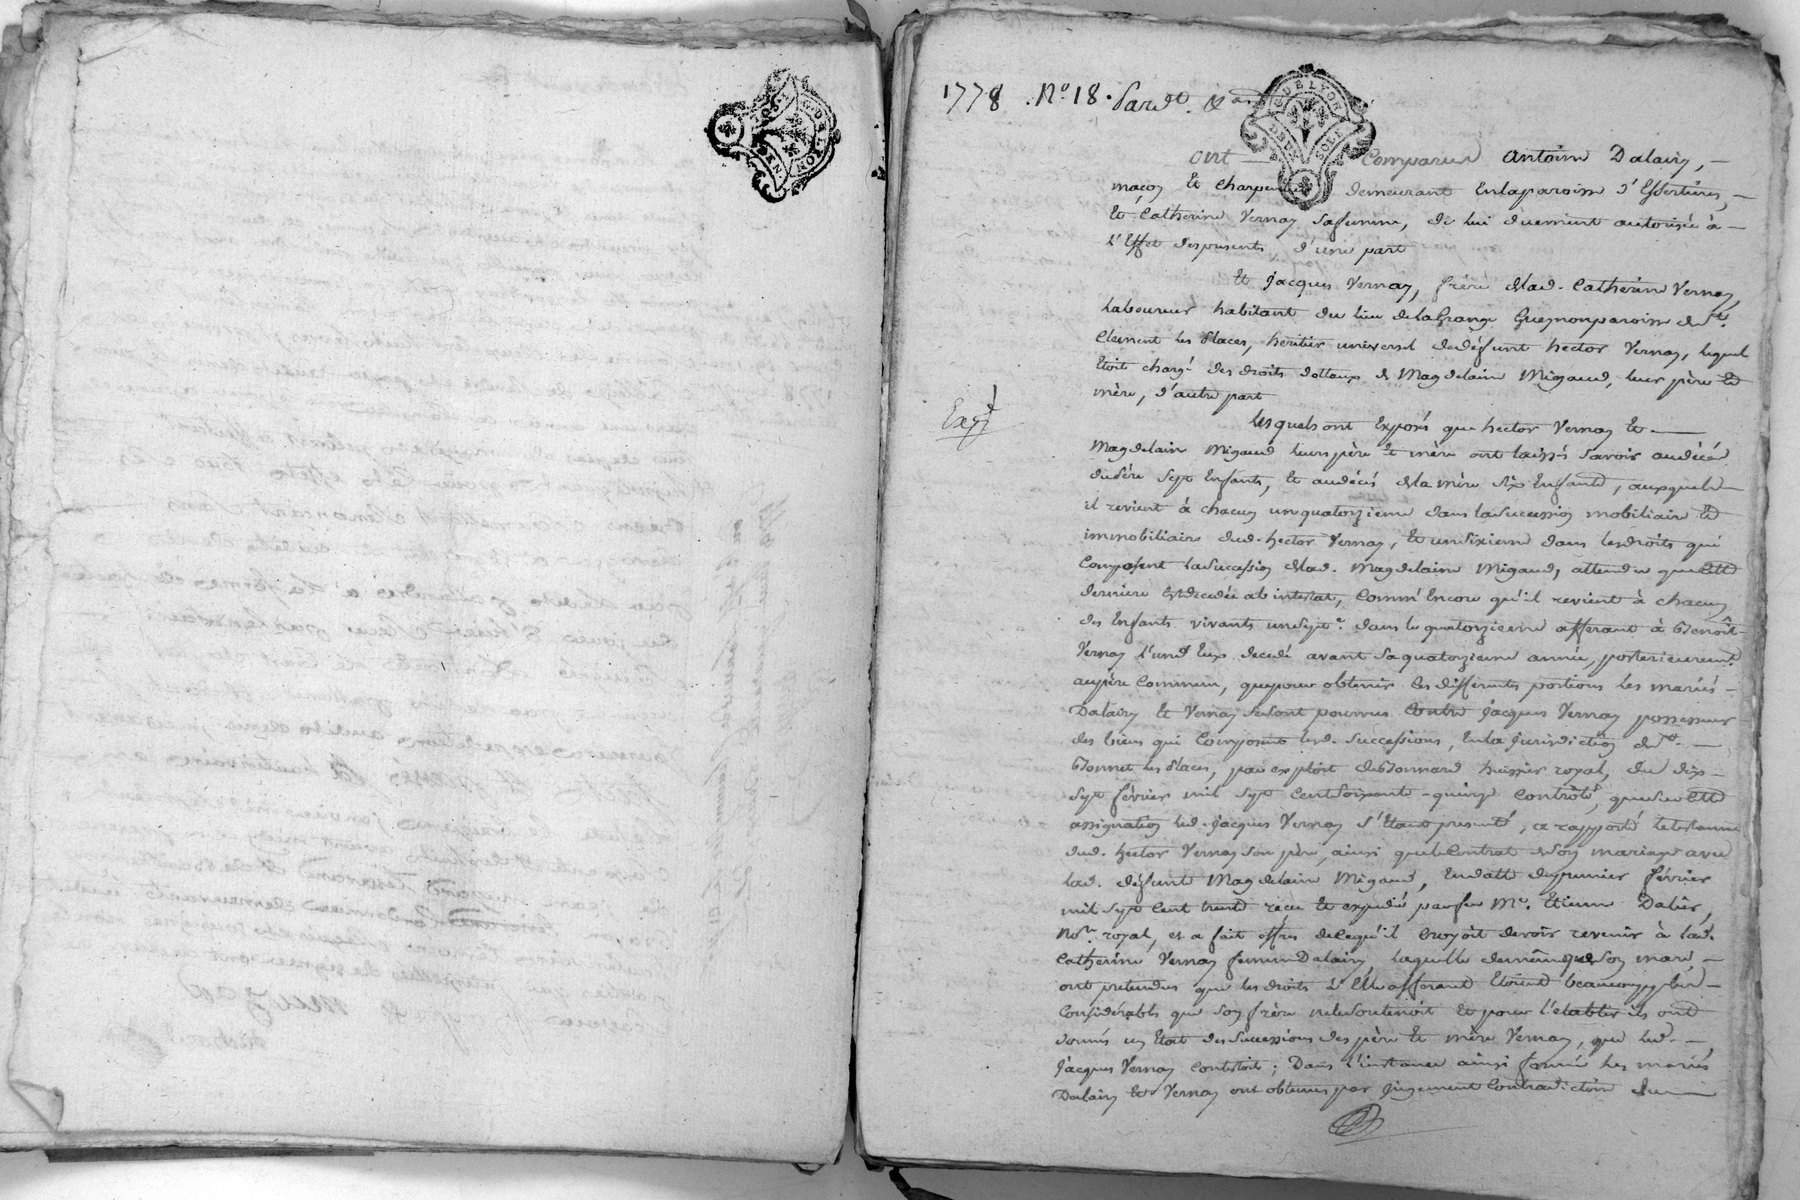 G. DE LYON
DEUX SOLS
1778 . No 18 . Pardt. &
G. DE LYON
DEUX SOLS
ont comparus antoine Dalairy,
maçon Et charpentier demeurant Enlaparoisse d'Essertines,
Et Catherine Vernay safemme, de lui duement autorisée à
l'Effet desprésents d'une part
Et jacques Vernay, frère delad. Catherine Vernay,
laboureur habitant du lieu delaGrange Guegnon paroisse de St.
Clement les places, héritier universel dedéfunt hector Vernay, lequel
Etoit chargé des droits dottaux de Magdelaine Migaud, leurs père Et
mère, d'autre part
Exp.é
lesquels ont Exposés que hector Vernay Et
Magdelaine Migaud leurs père Et mère ont laissés savoir audécès
dudit père sept Enfants, Et audécès delamère six Enfants, auxquels
il revient à chacun unquatorzieme dans lasuccession mobiliaire Et
immobiliaire dud. hector Vernay, Et unsixieme dans lesdroits qui
Composent lasuccession delad. Magdelaine Migaud, attendu que cette
derniere Estdecedée ab intestat, Comm'Encore qu'il revient à chacun
des Enfants vivants unsept.e dans le quatorzieme afferant à Benoît
Vernay l'und'Eux decedé avant saquatorzieme année, posterieurement
aupère Commun, quepour obtenir ces differentes portions les mariés
Dalairy Et Vernay sesont pourvus Contre jacques Vernay possesseur
des biens qui Composent lesd. successions, Enla jurisdiction de St.
Bonnet les places, par exploit deBonnard huissier royal, du dix
sept février mil sept Centsoixante-quinze Controlé, quesur cette
assignation led. jacques Vernay s'Etant presenté, a rapporté letestament
dud. hector Vernay son père, ainsi que leContrat deson mariage avec
lad. défunte Magdelaine Migaud, Endatte dupremier février
mil sept Cent trente reçu Et expedié parfeu Me. Etienne Dalier,
No.re royal, et a fait offres deCequ'il Croyoit devoir revenir à lad.
Catherine Vernay femmeDalairy laquelle demême que son mari
ont pretendus que les droits à Elle afferant Etoient beaucoup plus
Considérables que son frère nelesoutenoit Et pour l'etablir ils ont
donnés un Etat dessuccessions des père Et mère Vernay, que led.
jacques Vernay Contestoit ; Dans l'instance ainsi formée les mariés
Dalairy Et Vernay ont obtenus par jugement Contradictoire du